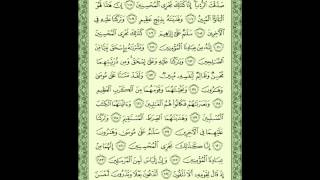 صَدَّقْتَ الرُّءْيَا إِنَّا كَذَٰلِكَ نَجْزِى الْمُحْسِنِينَ ١٠٥ إِنَّ هَٰذَا لَهُوَ
الْبَلَٰٓؤُا الْمُبِينُ ١٠٦ وَفَدَيْنَٰهُ بِذِبْحٍ عَظِيمٍ ١٠٧ وَتَرَكْنَا عَلَيْهِ
فِى الْءَاخِرِينَ ١٠٨ سَلَٰمٌ عَلَىٰٓ إِبْرَٰهِيمَ ١٠٩ كَذَٰلِكَ نَجْزِى الْمُحْسِنِينَ ١١٠
إِنَّهُۥ مِنْ عِبَادِنَا الْمُؤْمِنِينَ ١١١ وَبَشَّرْنَٰهُ بِإِسْحَٰقَ نَبِيًّا مِّنَ
الصَّٰلِحِينَ ١١٢ وَبَٰرَكْنَا عَلَيْهِ وَعَلَىٰٓ إِسْحَٰقَ وَمِن ذُرِّيَّتِهِمَا
مُحْسِنٌ وَظَالِمٌ لِّنَفْسِهِۦ مُبِينٌ ١١٣ وَلَقَدْ مَنَنَّا عَلَىٰ مُوسَىٰ وَهَٰرُونَ
١١٤ وَنَجَّيْنَٰهُمَا وَقَوْمَهُمَا مِنَ الْكَرْبِ الْعَظِيمِ ١١٥
وَنَصَرْنَٰهُمْ فَكَانُوا هُمُ الْغَٰلِبِينَ ١١٦ وَءَاتَيْنَٰهُمَا الْكِتَٰبَ
الْمُسْتَبِينَ ١١٧ وَهَدَيْنَٰهُمَا الصِّرَٰطَ الْمُسْتَقِيمَ ١١٨ وَتَرَكْنَا
عَلَيْهِمَا فِى الْءَاخِرِينَ ١١٩ سَلَٰمٌ عَلَىٰ مُوسَىٰ وَهَٰرُونَ
١٢٠ إِنَّا كَذَٰلِكَ نَجْزِى الْمُحْسِنِينَ ١٢١ إِنَّهُمَا مِنْ
عِبَادِنَا الْمُؤْمِنِينَ ١٢٢ وَإِنَّ إِلْيَاسَ لَمِنَ الْمُرْسَلِينَ ١٢٣
إِذْ قَالَ لِقَوْمِهِۦٓ أَلَا تَتَّقُونَ ١٢٤ أَتَدْعُونَ بَعْلًا وَتَذَرُونَ أَحْسَنَ